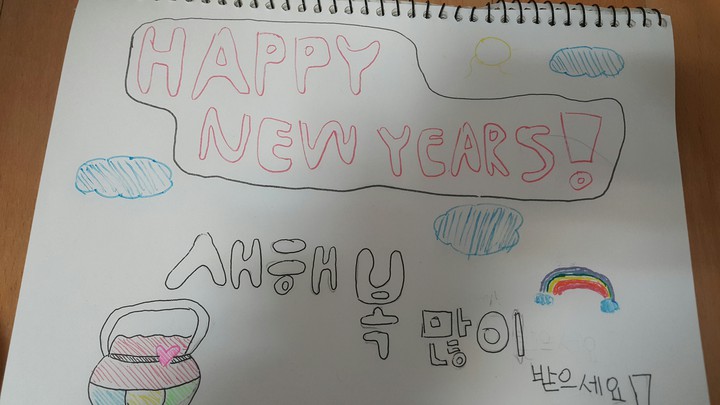 HAPPY
NEW YEARS!
새해 복 많이
받으세요